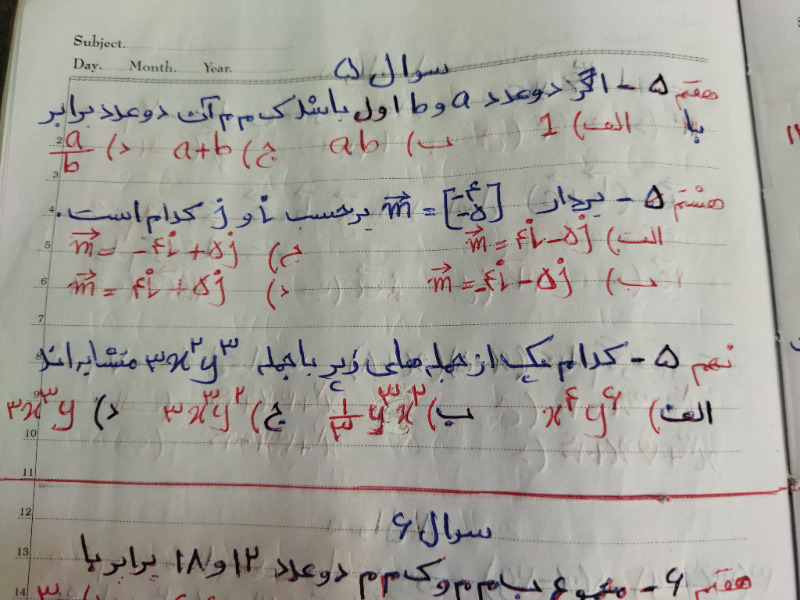 Subject.
Day. Month. Year.
سوال ۵
هفتم ۵ - اگر دو عدد a و b اول باشند ک م م آن دو عدد برابر
با الف) 1 ب) ab ج) a+b د) a/b
هشتم ۵ - بردار m = [-۴ -۵] برحسب i و j کدام است.
الف) m = ۴i - ۵j ج) m = -۴i + ۵j
ب) m = -۴i - ۵j د) m = ۴i + ۵j
نهم ۵ - کدام یک از جمله های زیر با جمله ۳x²y³ متشابه اند
الف) x⁴y⁶ ب) ۱/۳ y³x² ج) ۳x³y² د) ۳x³y
سوال ۶
هفتم ۶ - مجموع ب م م و ک م م دو عدد ۱۲ و ۱۸ برابر با